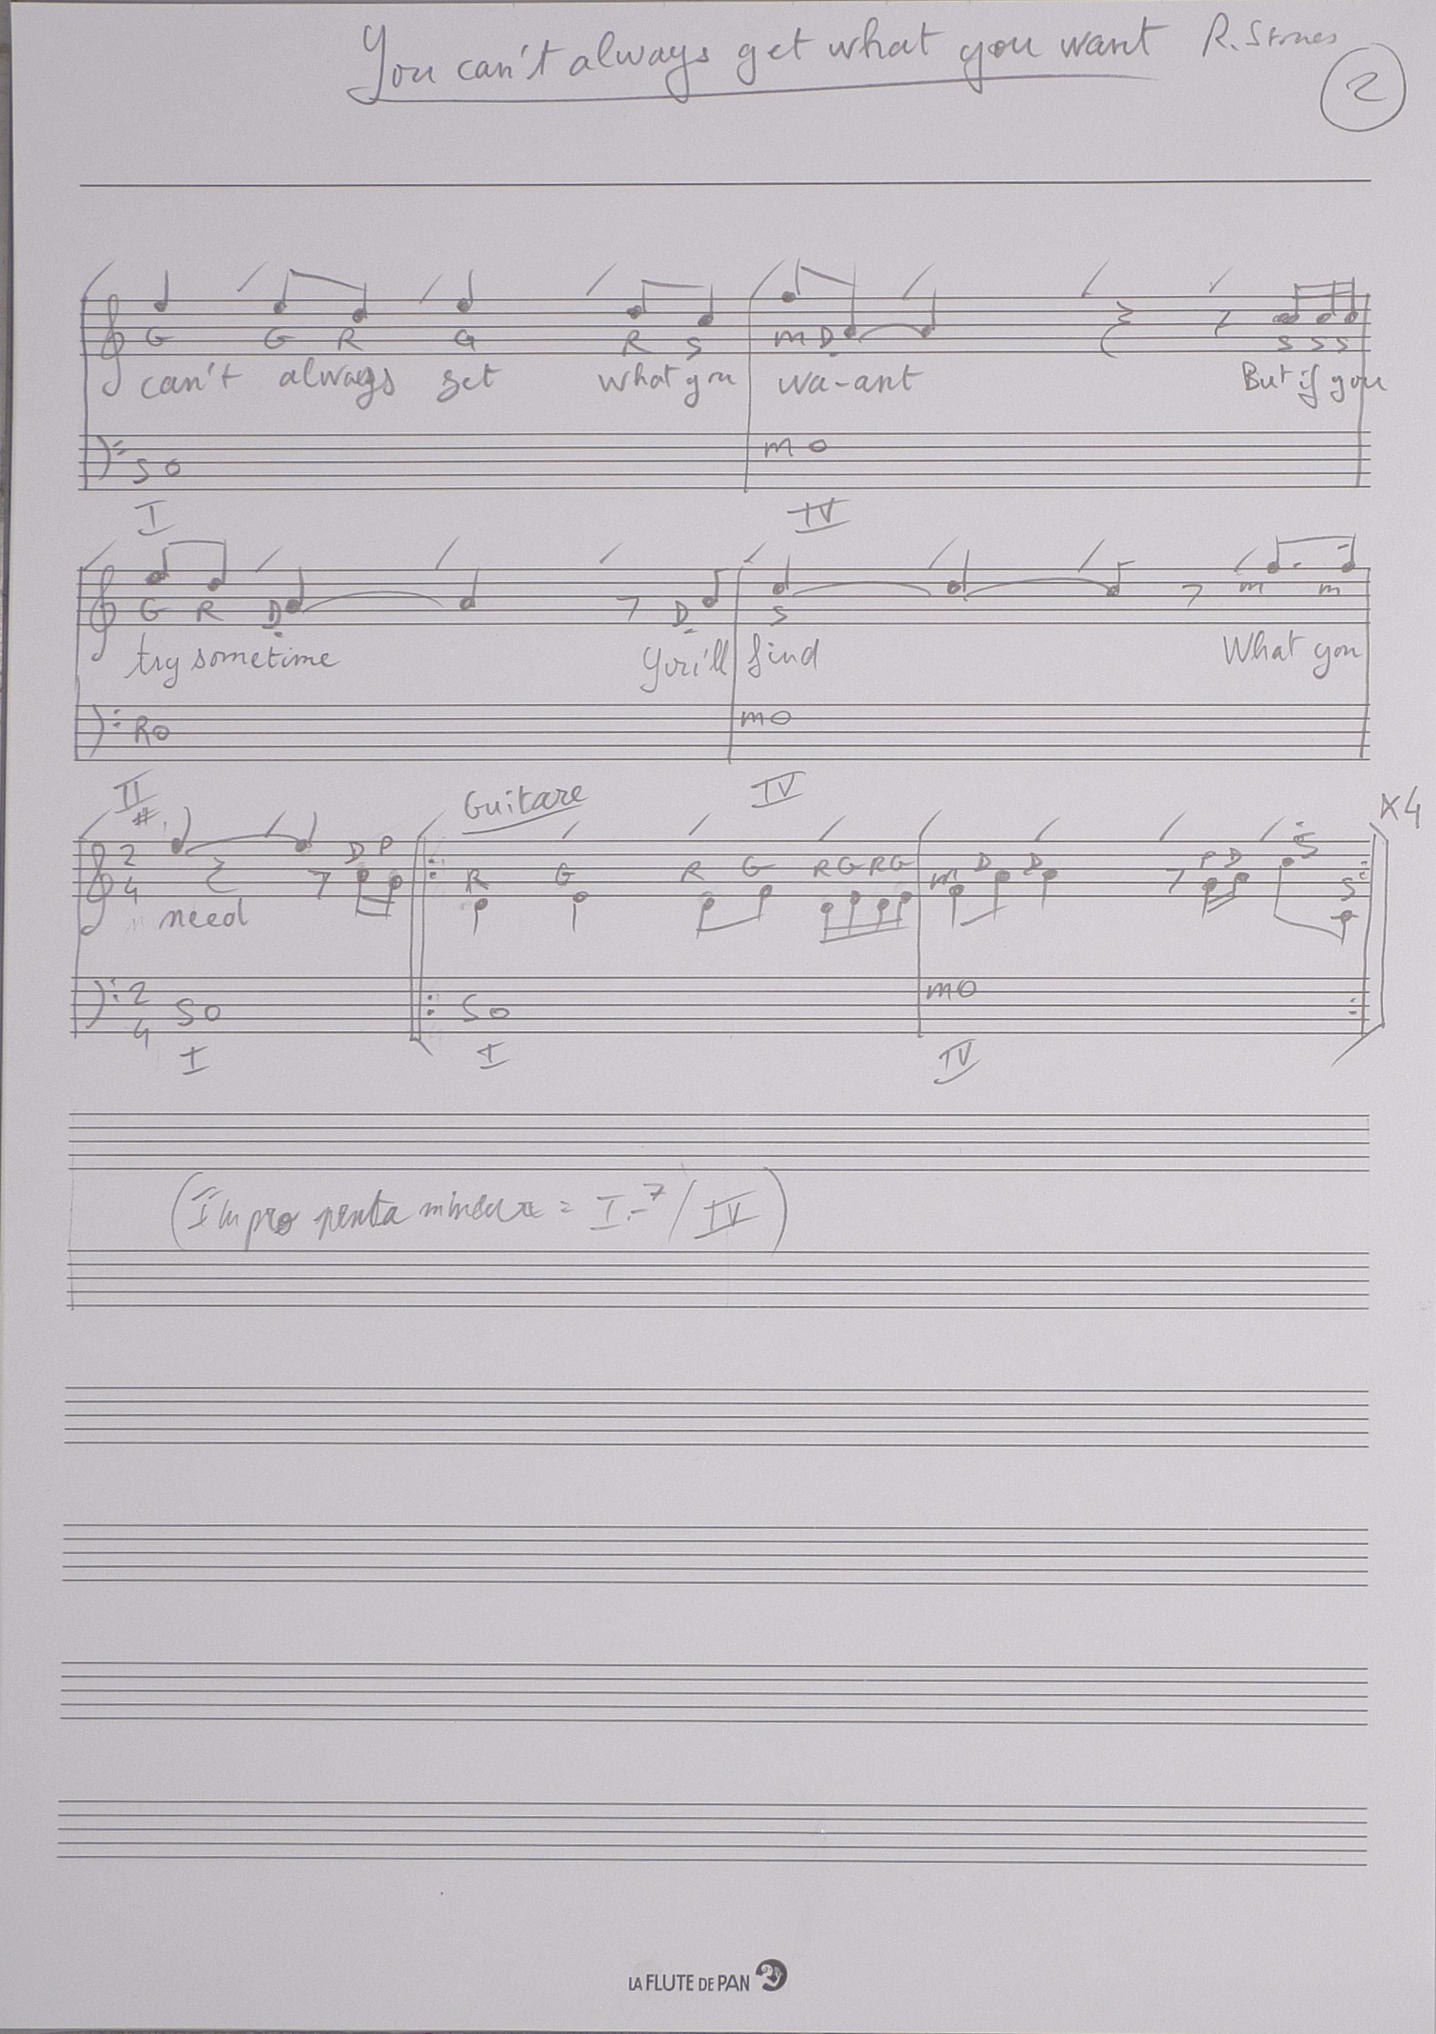 You can't always get what you want R. Stones
2
G G R G R S m D S S S
can't always get what you wa-ant But if you
S m
I IV
G R D D S m m
try sometime You'll find What you
R m
II IV
Guitare
X4
# 2 4 D P R G R G R G R G m D D P D S S
need
2 4 S S m
I I IV
(Impro penta mineure = I-7 / IV)
LA FLUTE DE PAN